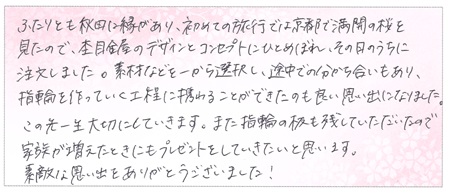 ふたりとも秋田に縁があり、初めての旅行では京都で満開の桜を
見たので、杢目金屋のデザインとコンセプトにひとめぼれ、その日のうちに
注文しました。素材などを一から選択し、途中での分かち合いもあり、
指輪を作っていく工程に携わることができたのも良い思い出になりました。
この先一生大切にしていきます。また指輪の板も残していただいたので
家族が増えたときにもプレゼントをしていきたいと思います。
素敵な思い出をありがとうございました!